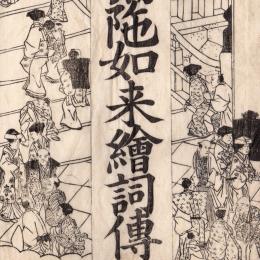 陁如来繪詞傳